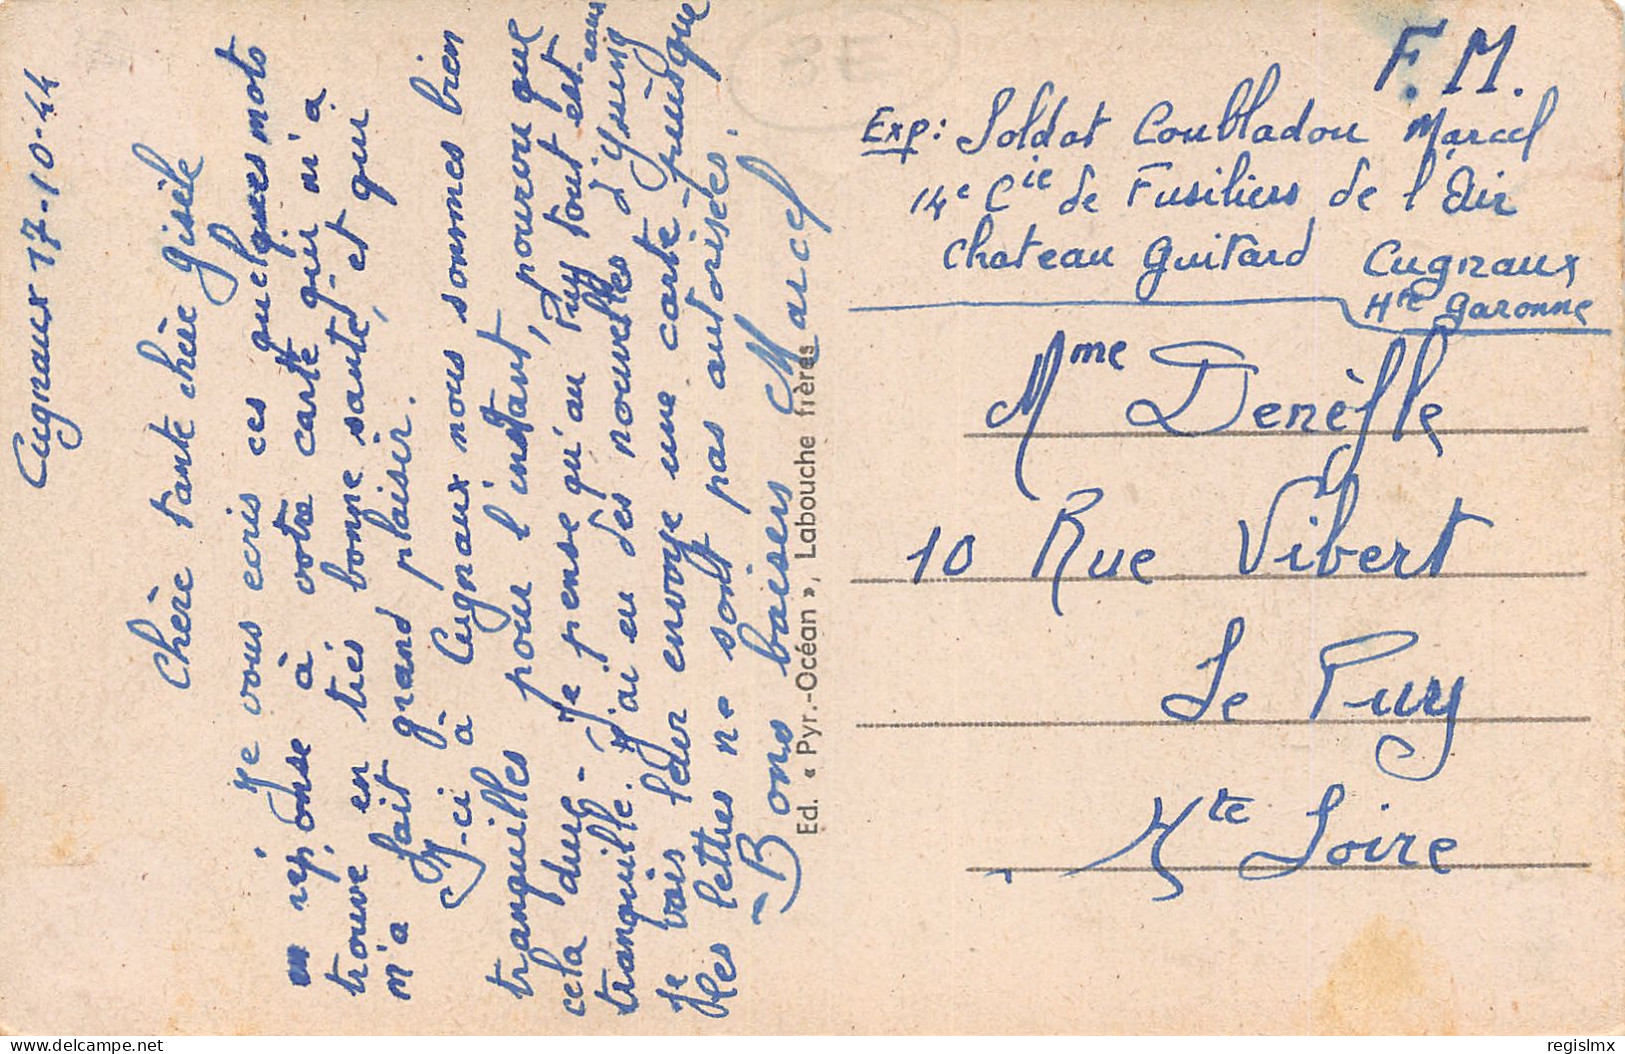 Cugnaux 17-10-44
Chère tante chère Gisèle
Je vous ecris ces quelques mots
en réponse à votre carte qui m'a
trouvé en très bonne santé, et qui
m'a fait grand plaisir.
Ici à Cugnaux nous sommes bien
tranquilles pour l'instant, pourvu que
cela dure - Je pense qu'au Puy tout est
tranquille. J'ai eu des nouvelles d'Ysseng
je vais leur envoyé une carte puisque
les lettres ne sont pas autorisées.
Bons baisers Marcel
Ed. « Pyr.-Océan », Labouche frères
F.M.
Exp: Soldat Coubladou Marcel
14e Cie de Fusiliers de l'Air
Chateau Guitard Cugnaux
Hte Garonne
Mme Denéfle
10 Rue Vibert
Le Puy
Hte Loire
delcampe.net
regislmx